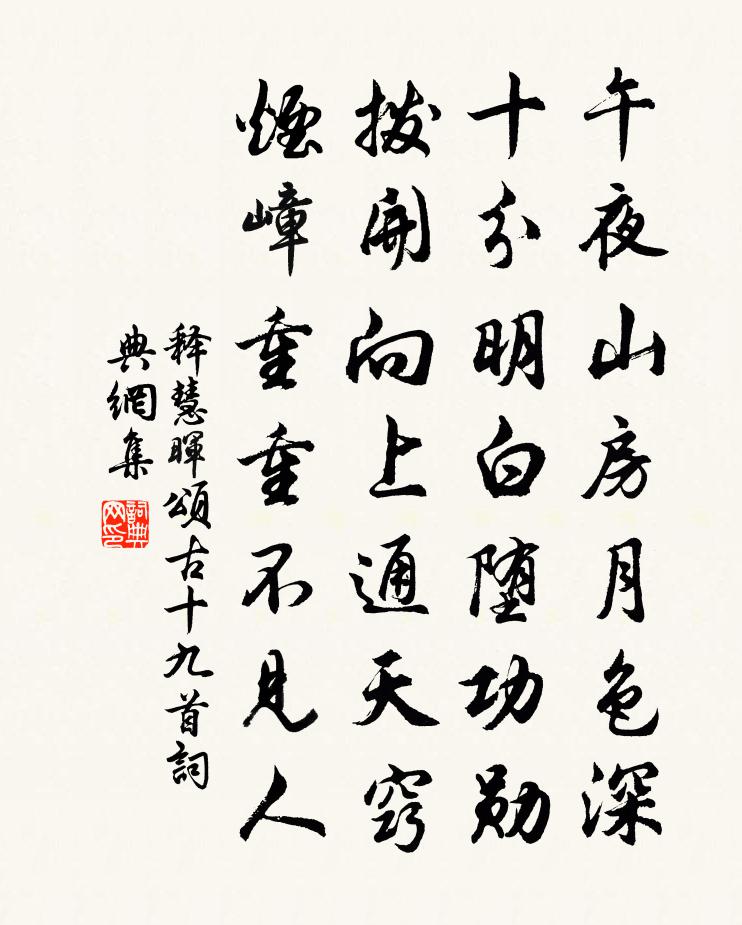 午夜山房月色深
十分明白堕功勋
拨開向上通天窍
煙嶂重重不見人
释慧暉頌古十九首詞
典網集
詞典
网印